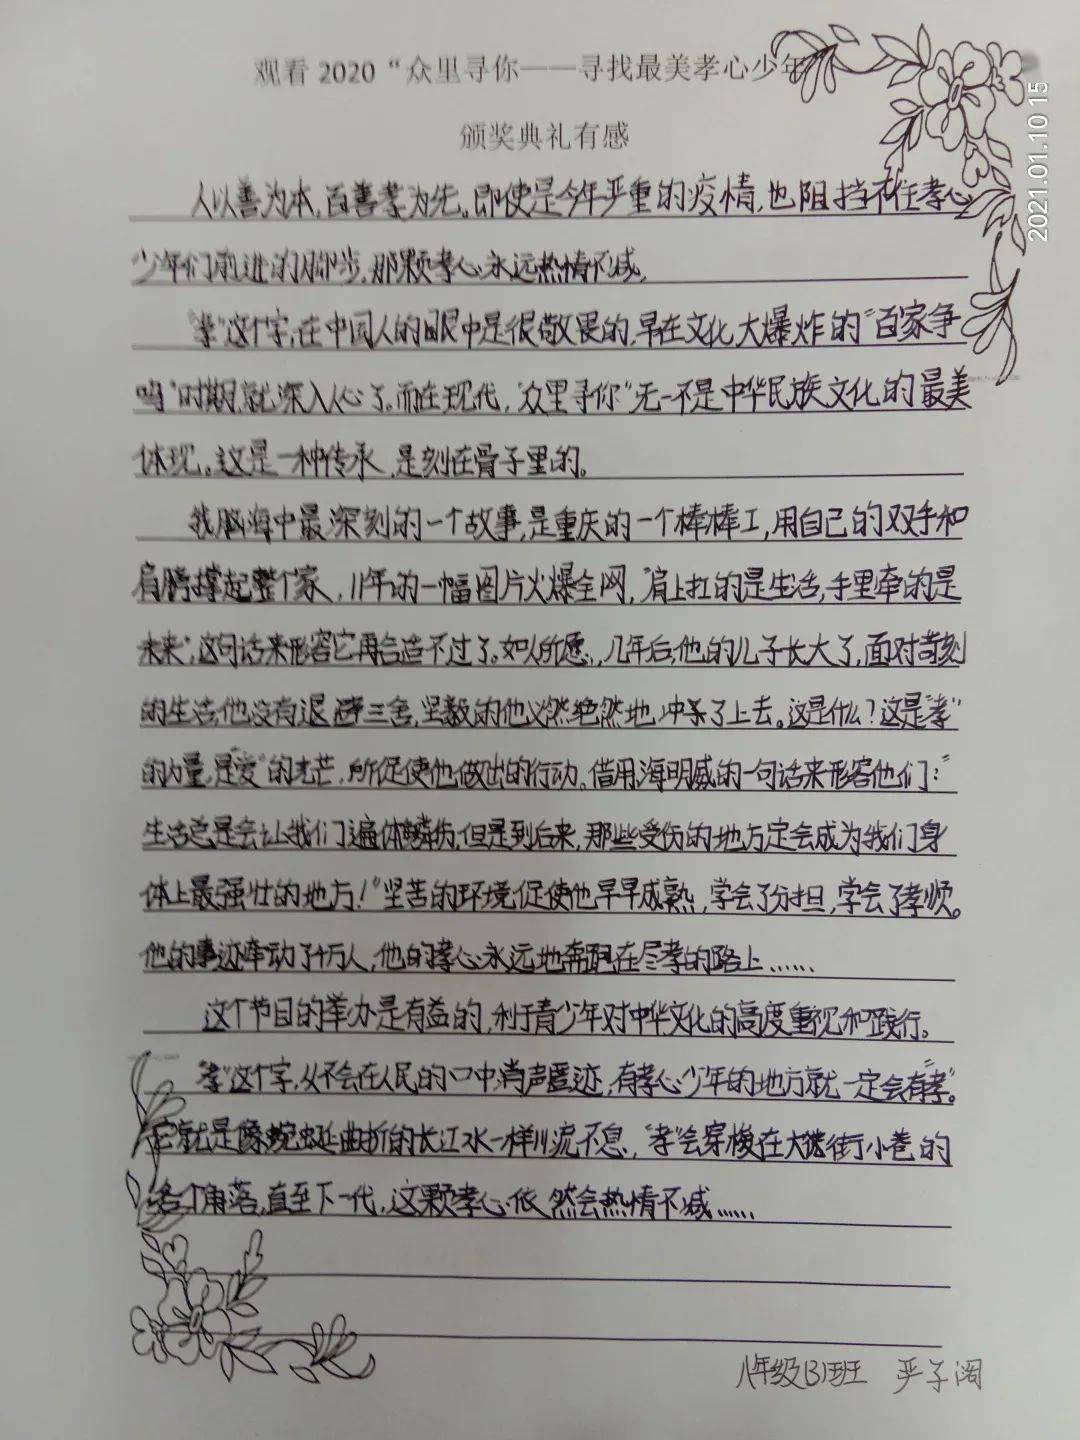 观看2020“众里寻你——寻找最美孝心少年
颁奖典礼有感
2021.01.10 15
人以善为本,百善孝为先。即使是今年严重的疫情,也阻挡不住孝心
少年们前进的脚步,那颗孝心永远热情不减。
“孝”这个字,在中国人的眼中是很敬畏的,早在文化大爆炸的“百家争
鸣”时期就深入人心了。而在现代,“众里寻你”无一不是中华民族文化的最美
体现。这是一种传承,是刻在骨子里的。
我脑海中最深刻的一个故事,是重庆的一个棒棒工,用自己的双手和
肩膀撑起整个家,11年的一幅图片火爆全网,“肩上扛的是生活,手里牵的是
未来”,这句话来形容它再合适不过了。如人所愿,几年后,他的儿子长大了,面对苛刻
的生活,他没有退避三舍,坚毅的他义然绝然地冲杀了上去。这是什么?这是“孝”
的力量,是“爱”的光芒,所促使他做出的行动。借用海明威的一句话来形容他们:“
生活总是会让我们遍体鳞伤,但是到后来,那些受伤的地方定会成为我们身
体上最强壮的地方!”坚苦的环境促使他早早成熟,学会了分担,学会了孝顺。
他的事迹牵动了千万人,他的孝心永远地奔跑在尽孝的路上……
这个节目的举办是有益的,利于青少年对中华文化的高度重视和践行。
“孝”这个字,从不会在人民的口中消声匿迹,有孝心少年的地方就一定会有“孝”。
它就是像蜿蜒曲折的长江水一样川流不息,“孝”会穿梭在大街小巷的
各个角落,直至下一代,这颗孝心依然会热情不减……
八年级(3)班 严子阁